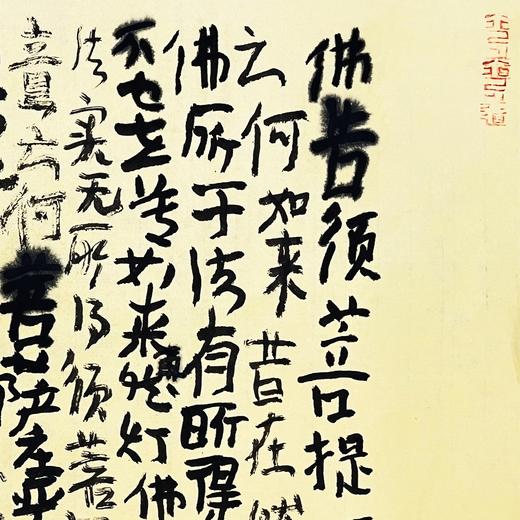 佛告须菩提
云何如来昔在
佛所于法有所得
不也世尊如来然灯佛
法实无所得须菩
意云何菩萨庄严